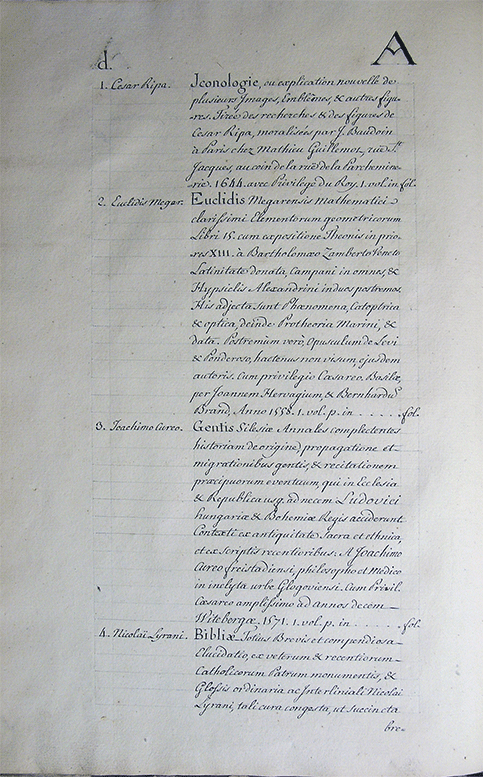 A
d.
1. Cesar Ripa. Jconologie, ou explication nouvelle de
plusieurs Images, Emblêmes, & autres figu-
res. Tirée des recherches & des figures de
Cesar Ripa, moralisées par J. Baudoin
à Paris chez Mathieu Guillemot, ruë St.
Jacques, au coin de la ruë de la Parchemine-
rie. 1644. avec Privilege du Roy. 1. vol. in fol.
2. Euclidis Megar. Euclidis Megarensis Mathematici
clarissimi Elementorum geometricorum
Libri 15. cum expositione Theonis in prio-
res XIII. à Bartholomæo Zamberto Veneto
Latinitate donata, Campani in omnes, &
Hypsiclis Alexandrini in duos postremos.
His adjecta sunt Phænomena, Catoptrica
& optica, deinde Protheoria Marini, &
data. Postremum verò, Opusculum de Levi
& Ponderoso, hactenus non visum, ejusdem
autoris. Cum privilegio Cæsareo. Basileæ,
per Joannem Hervagium, & Bernhardũ
Brand, Anno 1558. 1. vol. p. in . . . . . fol.
3. Joachimo Cureo. Gentis Silesiæ Annales complectentes
historiam de origine, propagatione et
migrationibus gentis, & recitationem
præcipuorum eventuum, qui in Ecclesia
& Republica usq. ad necem Ludovici
hungariæ & Bohemiæ Regis acciderunt.
Contexti ex antiquitate sacra et ethnica,
et ex scriptis recentioribus: A Joachimo
Cureo freistadiensi, philosopho et Medico
in inclyta urbe Glogoviensi. Cum Privil.
Cæsareo amplissimo ad annos decem
Witebergæ. 1571. 1. vol. p. in . . . . . fol.
4. Nicolai Lyrani. Bibliæ Totius Brevis et compendiosa
Elucidatio, ex veterum & recentiorum
Catholicorum Patrum monumentis, &
Glossis ordinaria ac Interliniali Nicolai
Lyrani, tali cura congesta, ut succincta
bre-